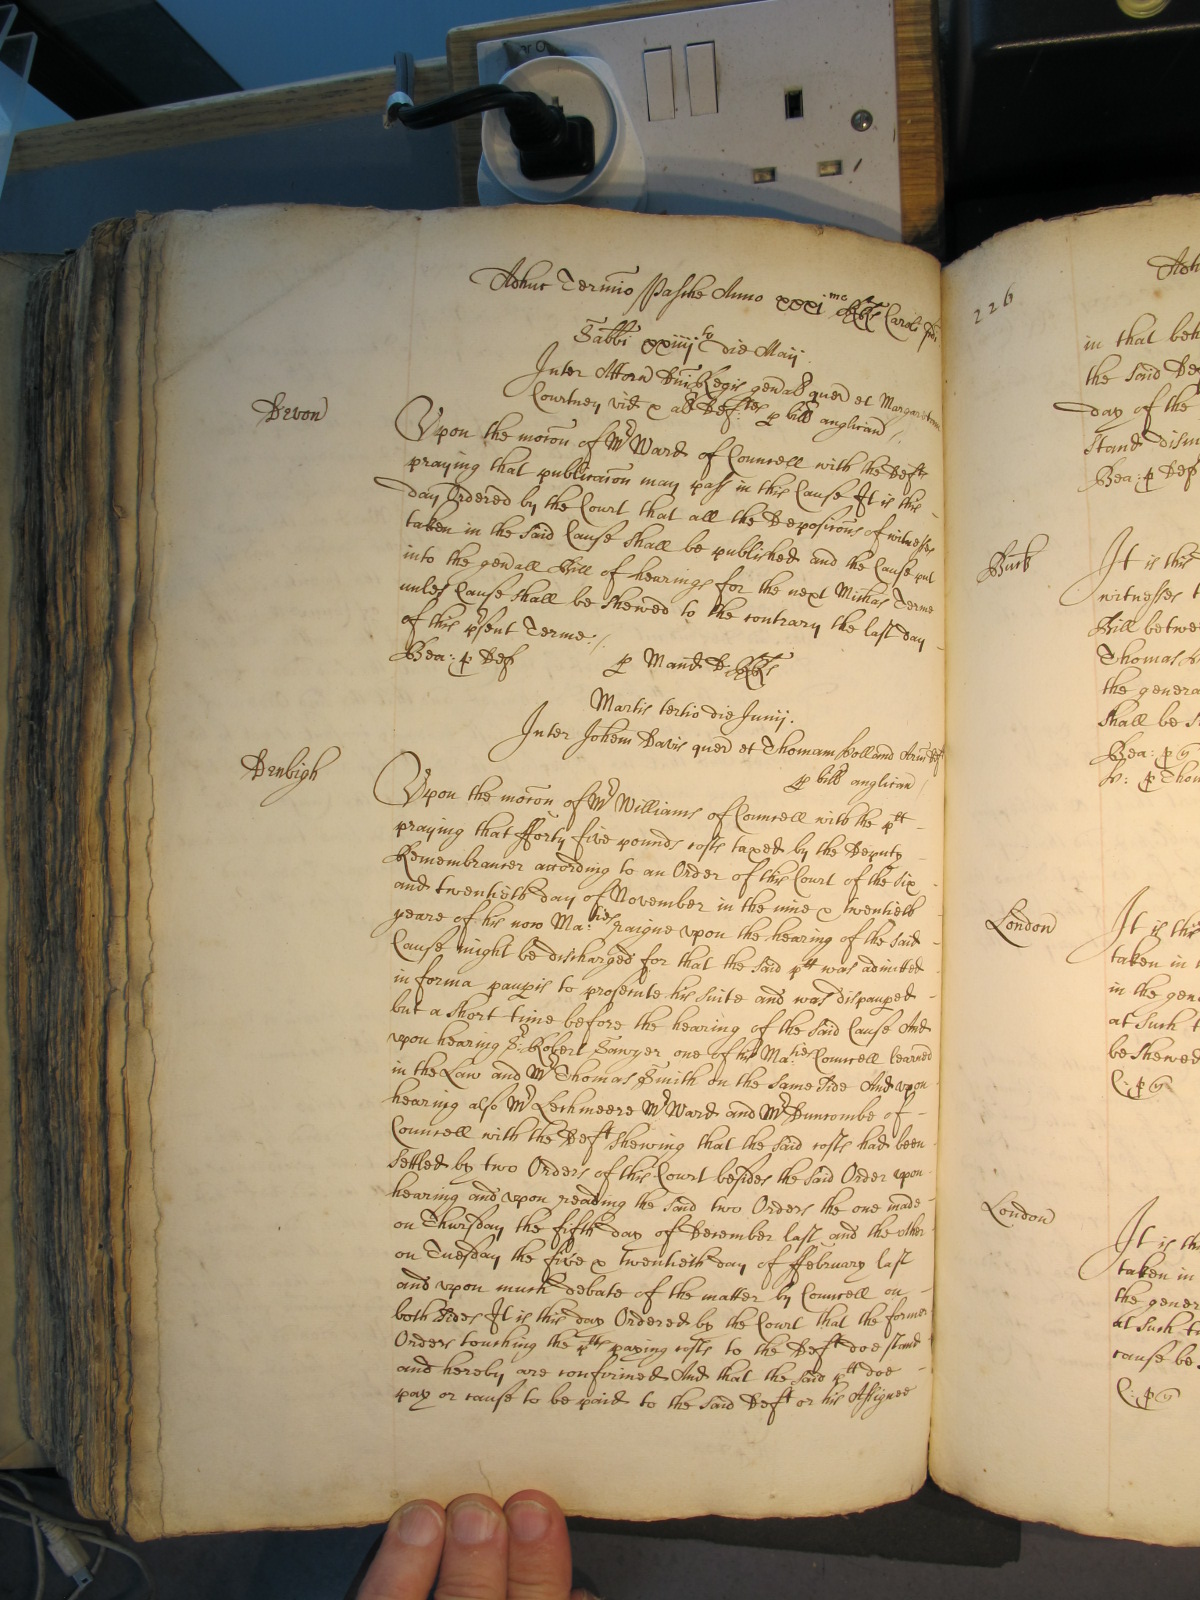 Adhuc Termino Pasche Anno xxxi mo RRs Caroli
Sabbi xxiiij to die Maij
Inter Attorn Dni Regis genal quer et Margaretam
Courtney vid & al Def.tes p bill anglican
Devon
Upon the mocon of Mr Ward of Councell with the Defts
praying that publicacon may pass in this Cause It is this
day Ordered by the Court that all the Deposicons of witnesses
taken in the said Cause shall be published and the Cause put
into the genall Bill of hearings for the next Michas Terme
unles Cause shall be shewed to the contrary the last day
of this psent Terme
Bea: p Def p Mand D: RRs
Martis tertio die Junij.
Inter Johem Davis quer et Thomam Holland Arm Def
p bill anglican
Denbigh
Upon the mocon of Mr Williams of Councell with the ptt
praying that fforty five pounds costs taxed by the Deputy
Remembrancer according to an Order of this Court of the Six
and twentieth day of November in the nine & twentieth
yeare of his now Ma:ties raigne upon the hearing of the said
Cause might be discharged for that the said ptt was admitted
in forma paupis to prosecute his suite and was dispauped
but a short time before the hearing of the said Cause And
upon hearing Sr: Robert Sawyer one of his Ma:ties Councell learned
in the Law and Mr Thomas Smith on the same side And upon
hearing also Mr Lechmeere Mr Ward and Mr Duncombe of
Councell with the Deft Shewing that the said costs had been
settled by two Orders of this Court besides the said Order upon
hearing and upon reading the said two Orders the one made
on Thursday the fifth day of December last and the other
on Tuesday the five & twentieth day of ffebruary last
and upon much debate of the matter by Councell on
both sides It is this day Ordered by the Court that the former
Orders touching the ptts paying costs to the Deft doe stand
and hereby are confirmed And that the said ptt doe
pay or cause to be paid to the said Deft or his Assignee
226
in that beh
the said De
day of the
stand dism
Bea: p Def
Buck
It is this
witnesses t
Bill betwe
Thomas
the genera
shall be s
Bea: p
p Thom
London
It is this
taken in
in the gen
at such t
be shewed
London
It is th
taken in
the gener
at such t
cause be